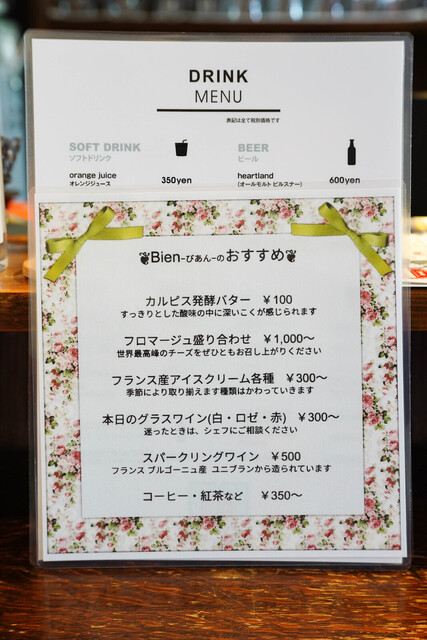 DRINK
MENU
表記は全て税別価格です
SOFT DRINK
ソフトドリンク
BEER
ビール
orange juice 350yen
オレンジジュース
heartland 600yen
(オールモルト ピルスナー)
Bien-びあん-のおすすめ
カルピス発酵バター ¥100
すっきりとした酸味の中に深いこくが感じられます
フロマージュ盛り合わせ ¥1,000〜
世界最高峰のチーズをぜひともお召し上がりください
フランス産アイスクリーム各種 ¥300〜
季節により取り揃えます種類はかわっていきます
本日のグラスワイン(白・ロゼ・赤) ¥300〜
迷ったときは、シェフにご相談ください
スパークリングワイン ¥500
フランス ブルゴーニュ産 ユニブランから造られています
コーヒー・紅茶など ¥350〜